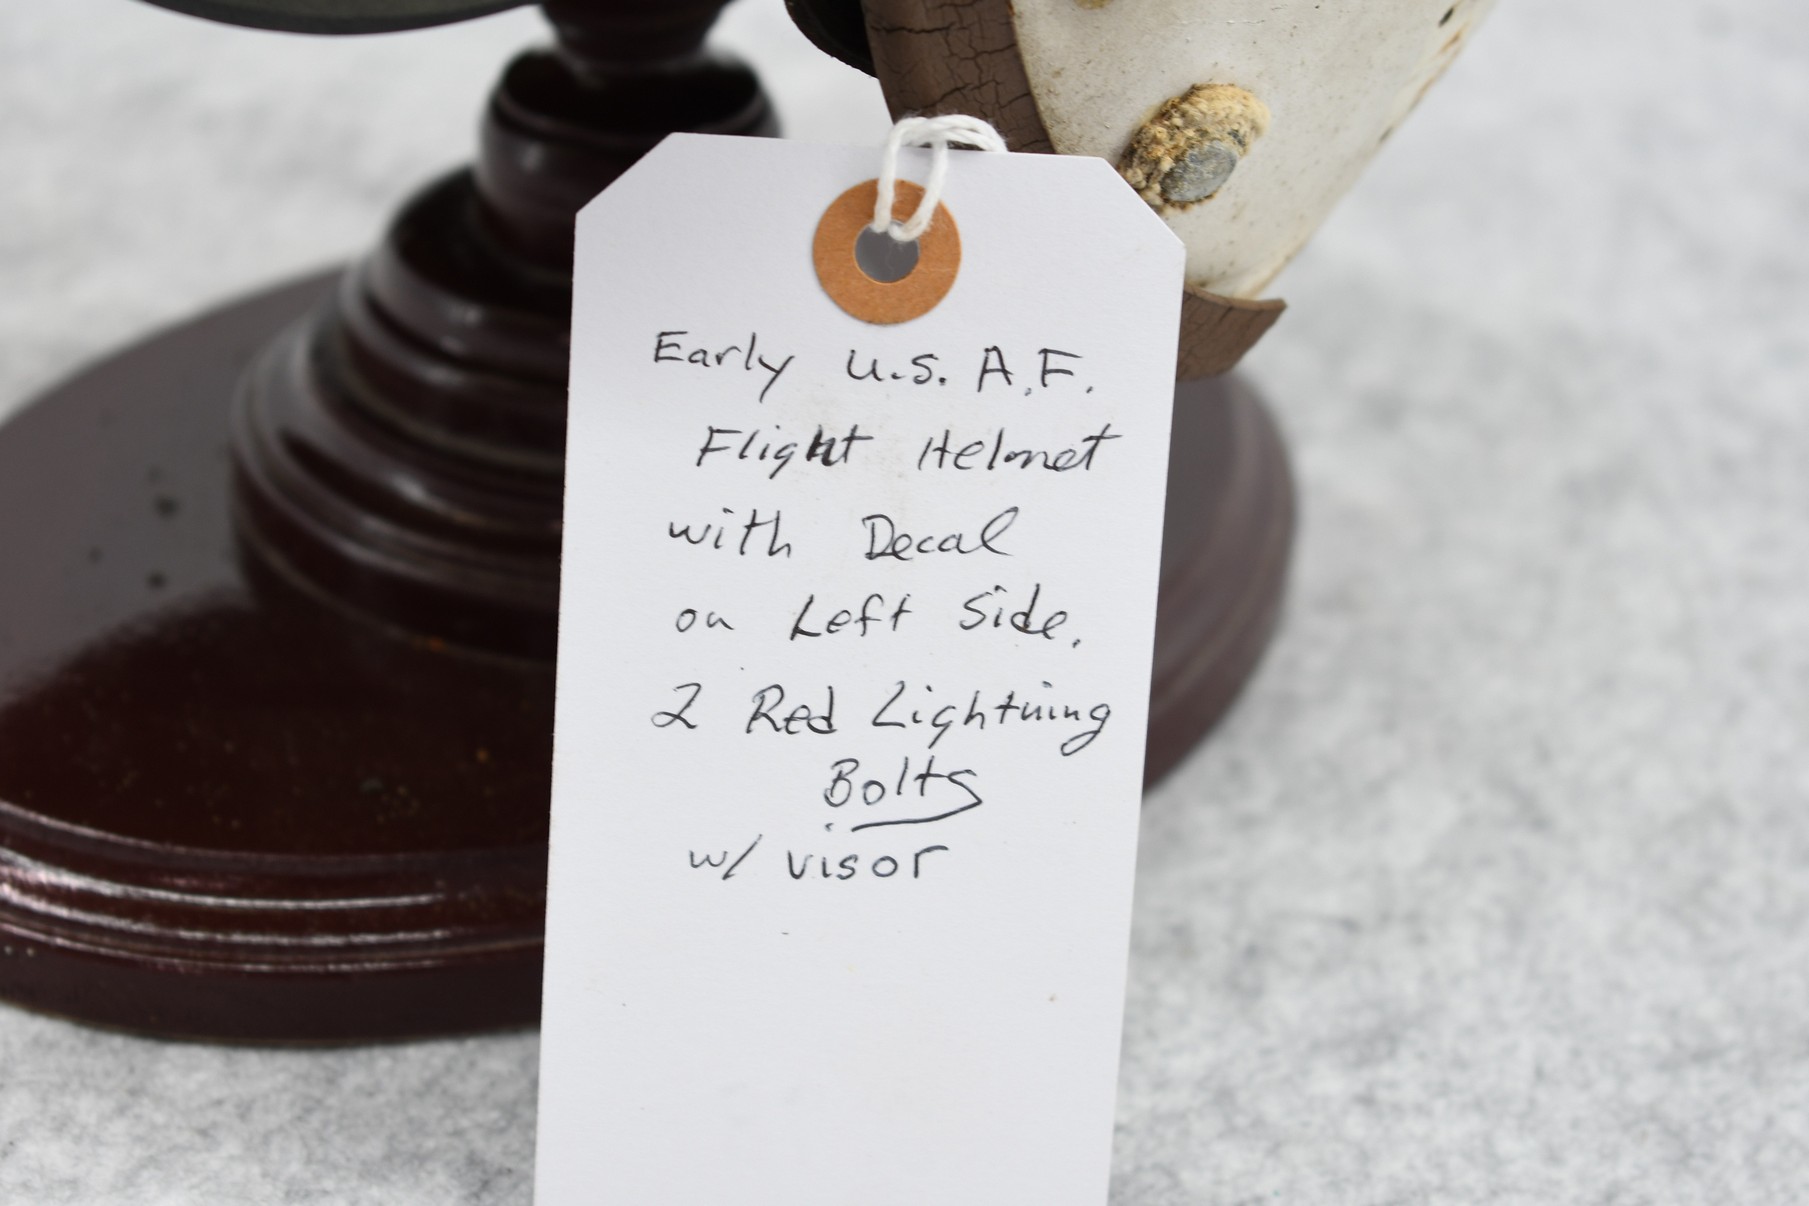 Early U.S. A.F.
Flight Helmet
with Decal
on Left Side.
2 Red Lightning
Bolts
w/ visor